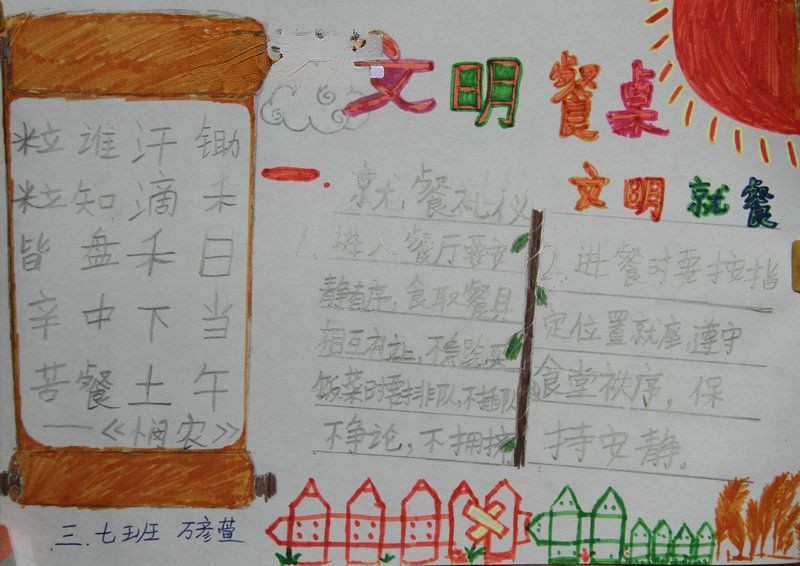 文明餐桌
文明就餐
锄禾日当午
汗滴禾下土
谁知盘中餐
粒粒皆辛苦
——《悯农》
一.就餐礼仪
1.进入餐厅要安
静有序,食取餐具
相互礼让,不跑买
饭菜时要排队,不插队
不争论,不拥挤
2.进餐时要按指
定位置就座,遵守
食堂秩序,保
持安静。
三.七班 万彦萱